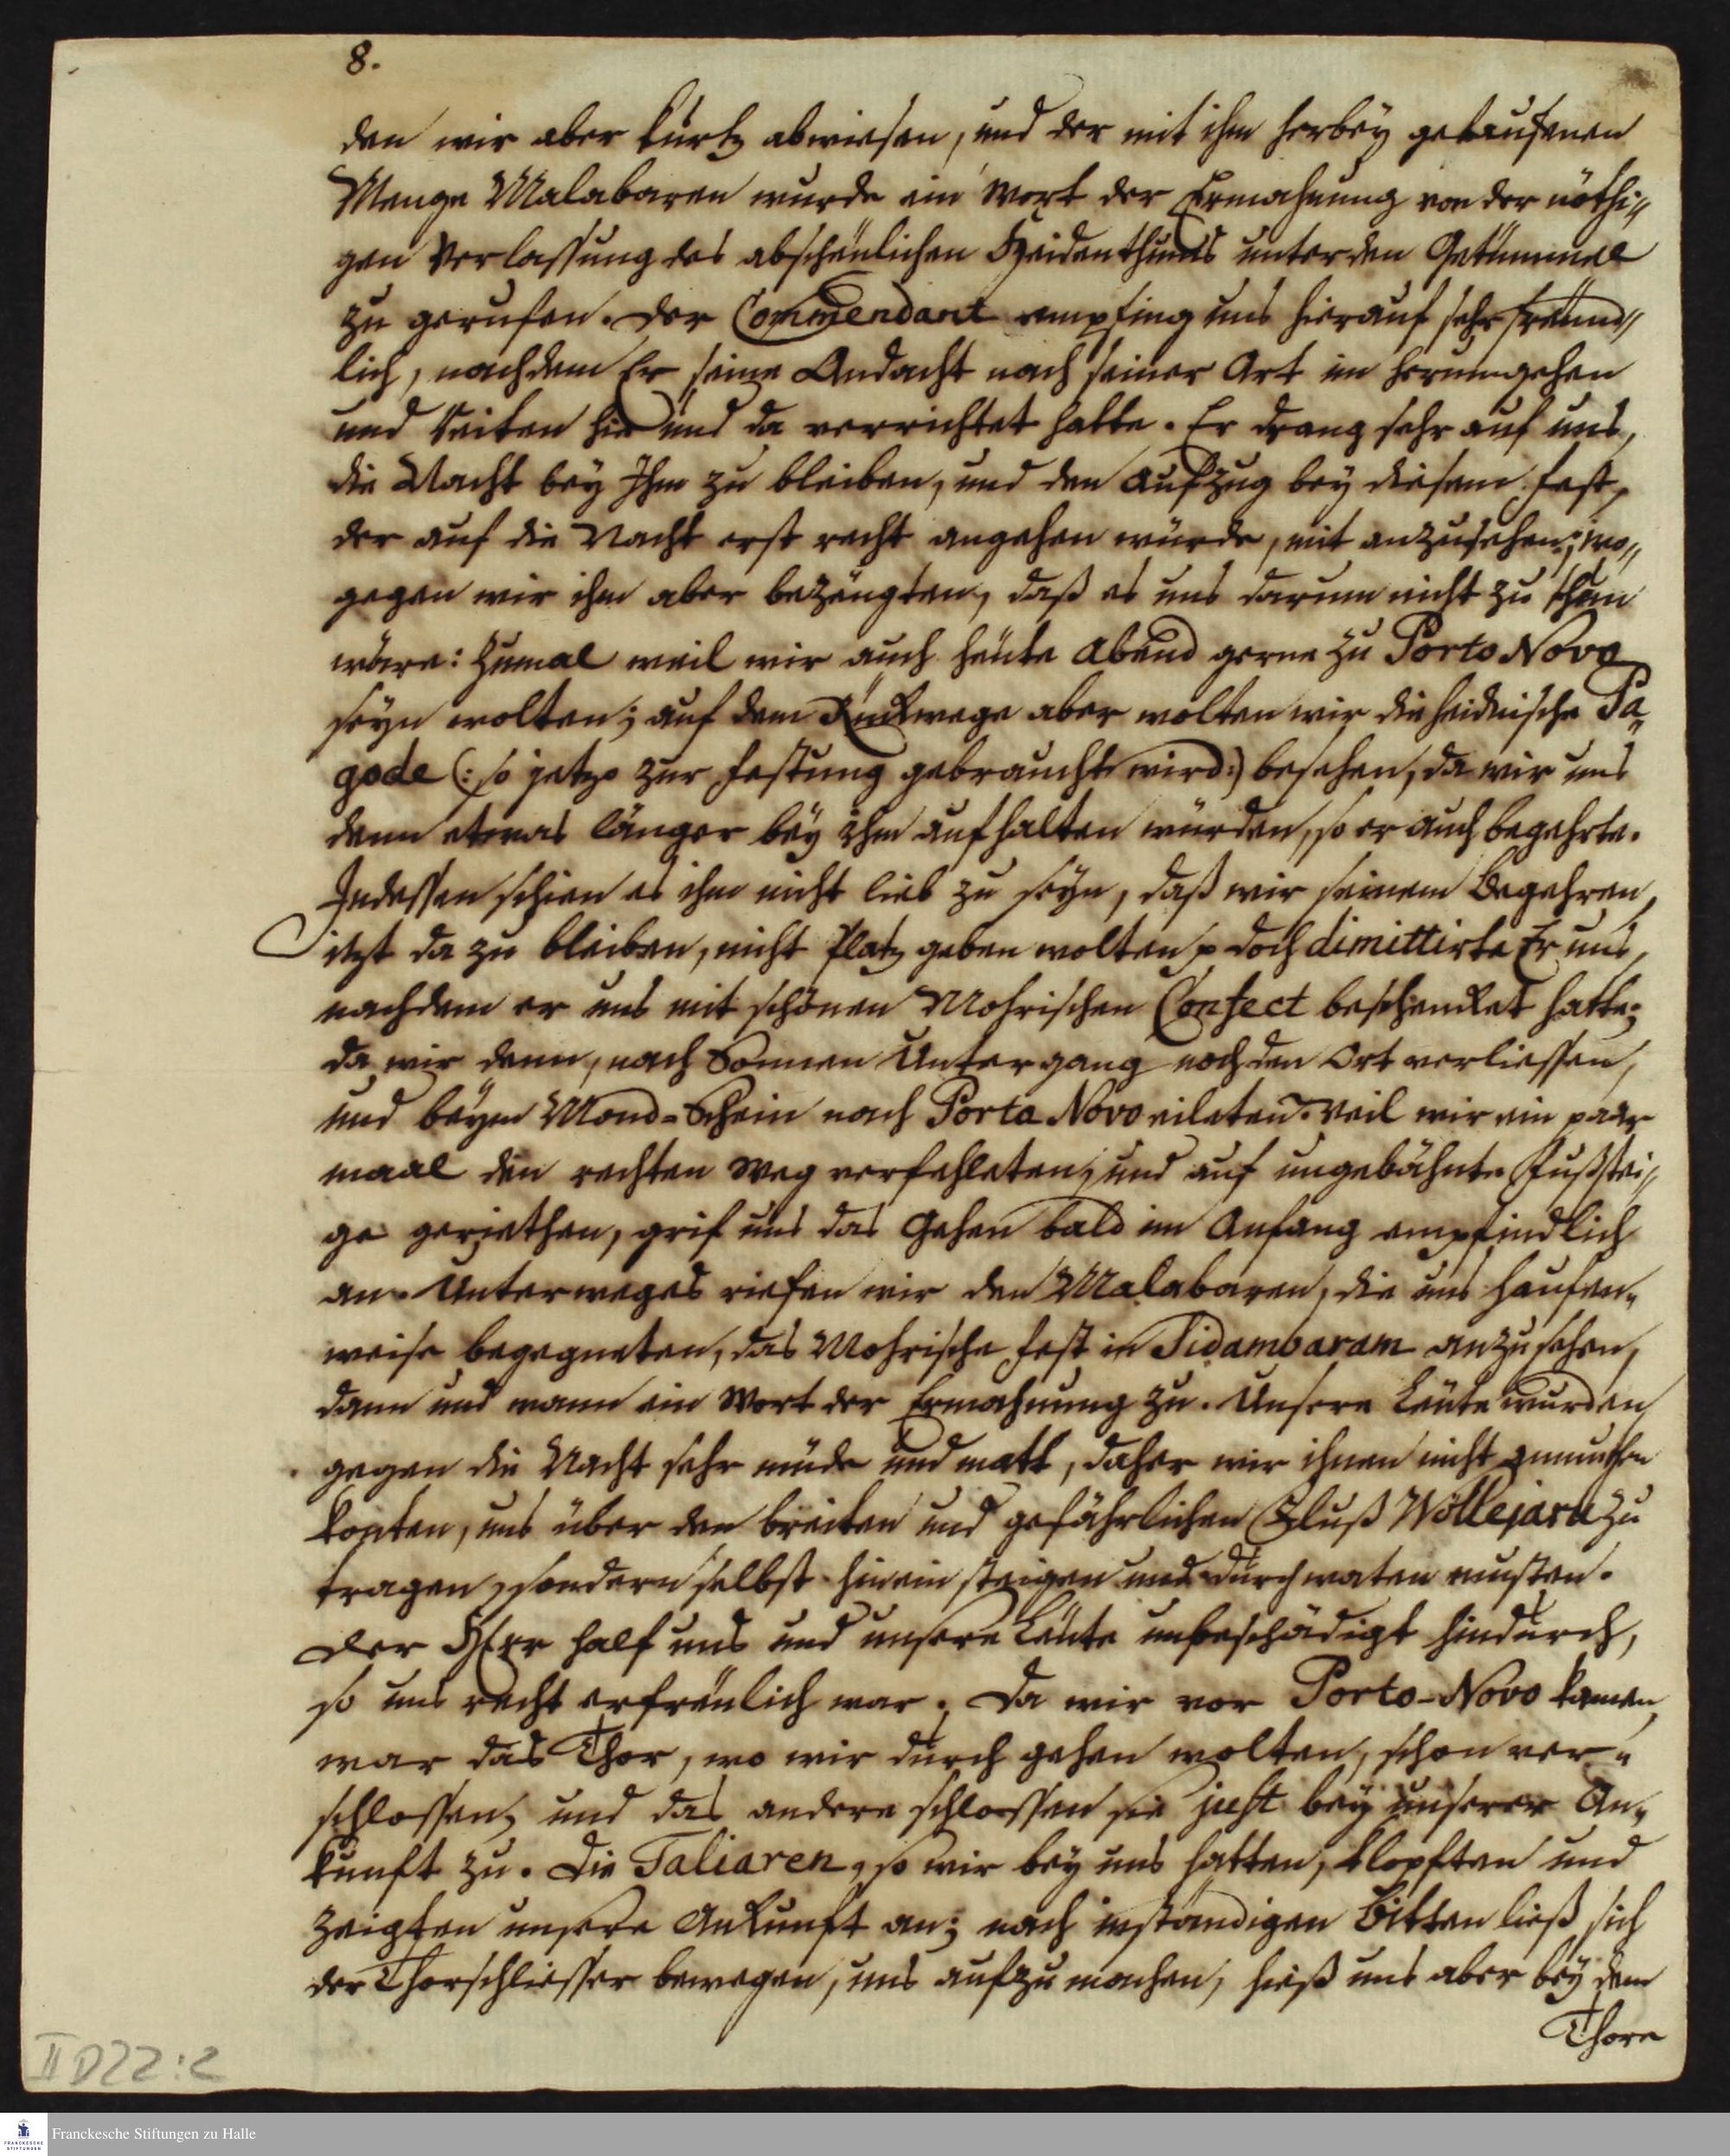 8.
den wir aber kurtz abwiesen, und der mit ihm herbey gelaufenen
Menge Malabaren wurde ein Wort der Ermahnung von der nöthi„
gen Verlassung des abscheulichen Heidenthums unter den Getümmel
zu geruffen. Der Commendant empfing uns hierauf sehr freund„
lich, nachdem Er seine Andacht nach seiner Art im herumgehen
und reiten hie und da verrichtet hatte. Er drang sehr auf uns,
die Nacht bey Ihm zu bleiben, und den Aufzug bey diesem Fest,
der auf die Nacht erst recht angehen würde, mit anzusehen; wo„
gegen wir ihm aber bezeugten, daß es uns darum nicht zu thun
wäre: zumal weil wir auch heute Abend gerne zu Porto Novo
seyn wolten; auf dem Rückwege aber wolten wir die heidnische Pa„
gode (: so jetzo zur Festung gebraucht wird:) besehen, da wir uns
denn etwas länger bey ihm aufhalten würden, so er auch begehrte.
Indessen schien es ihm nicht lieb zu seyn, daß wir seinem Begehren,
itzt da zu bleiben, nicht Platz geben wolten, doch dimittirte Er uns,
nachdem er uns mit schönen Mohrischen Confect beschencket hatte;
da wir denn, nach Sonnen Untergang noch den Ort verliessen,
und beym Mond-Schein nach Porto Novo eileten. Weil wir ein paar
maal den rechten Weg verfehleten, und auf ungebähnte Fußstei„
ge geriethen, grif uns das Gehen bald im Anfang empfindlich
an. Unterweges riefen wir den Malabaren, die uns haufen„
weise begegneten, das Mohrische Fest in Sidambaram anzusehen,
dann und wann ein Wort der Ermahnung zu. Unsere Leute wurden
gegen die Nacht sehr müde und matt, daher wir ihnen nicht zumuthen
konten, uns über den breiten und gefährlichen Fluß Wöllejaru zu
tragen, sondern selbst hinein steigen und durchwaten musten.
Der HErr half uns und unsere Leute unbeschädigt hindurch,
so uns recht erfreulich war. Da wir vor Porto-Novo kamen,
war das Thor, wo wir durch gehen wolten, schon ver„
schlossen, und das andere schlossen sie just bey unserer An„
kunft zu. Die Taliaren, so wir bey uns hatten, klopften und
zeigten unsere Ankunft an; nach inständigen Bitten ließ sich
der Thorschliesser bewegen, uns aufzumachen, hieß uns aber bey dem
Thore
II D22:2
Franckesche Stiftungen zu Halle
FRANCKESCHE
STIFTUNGEN